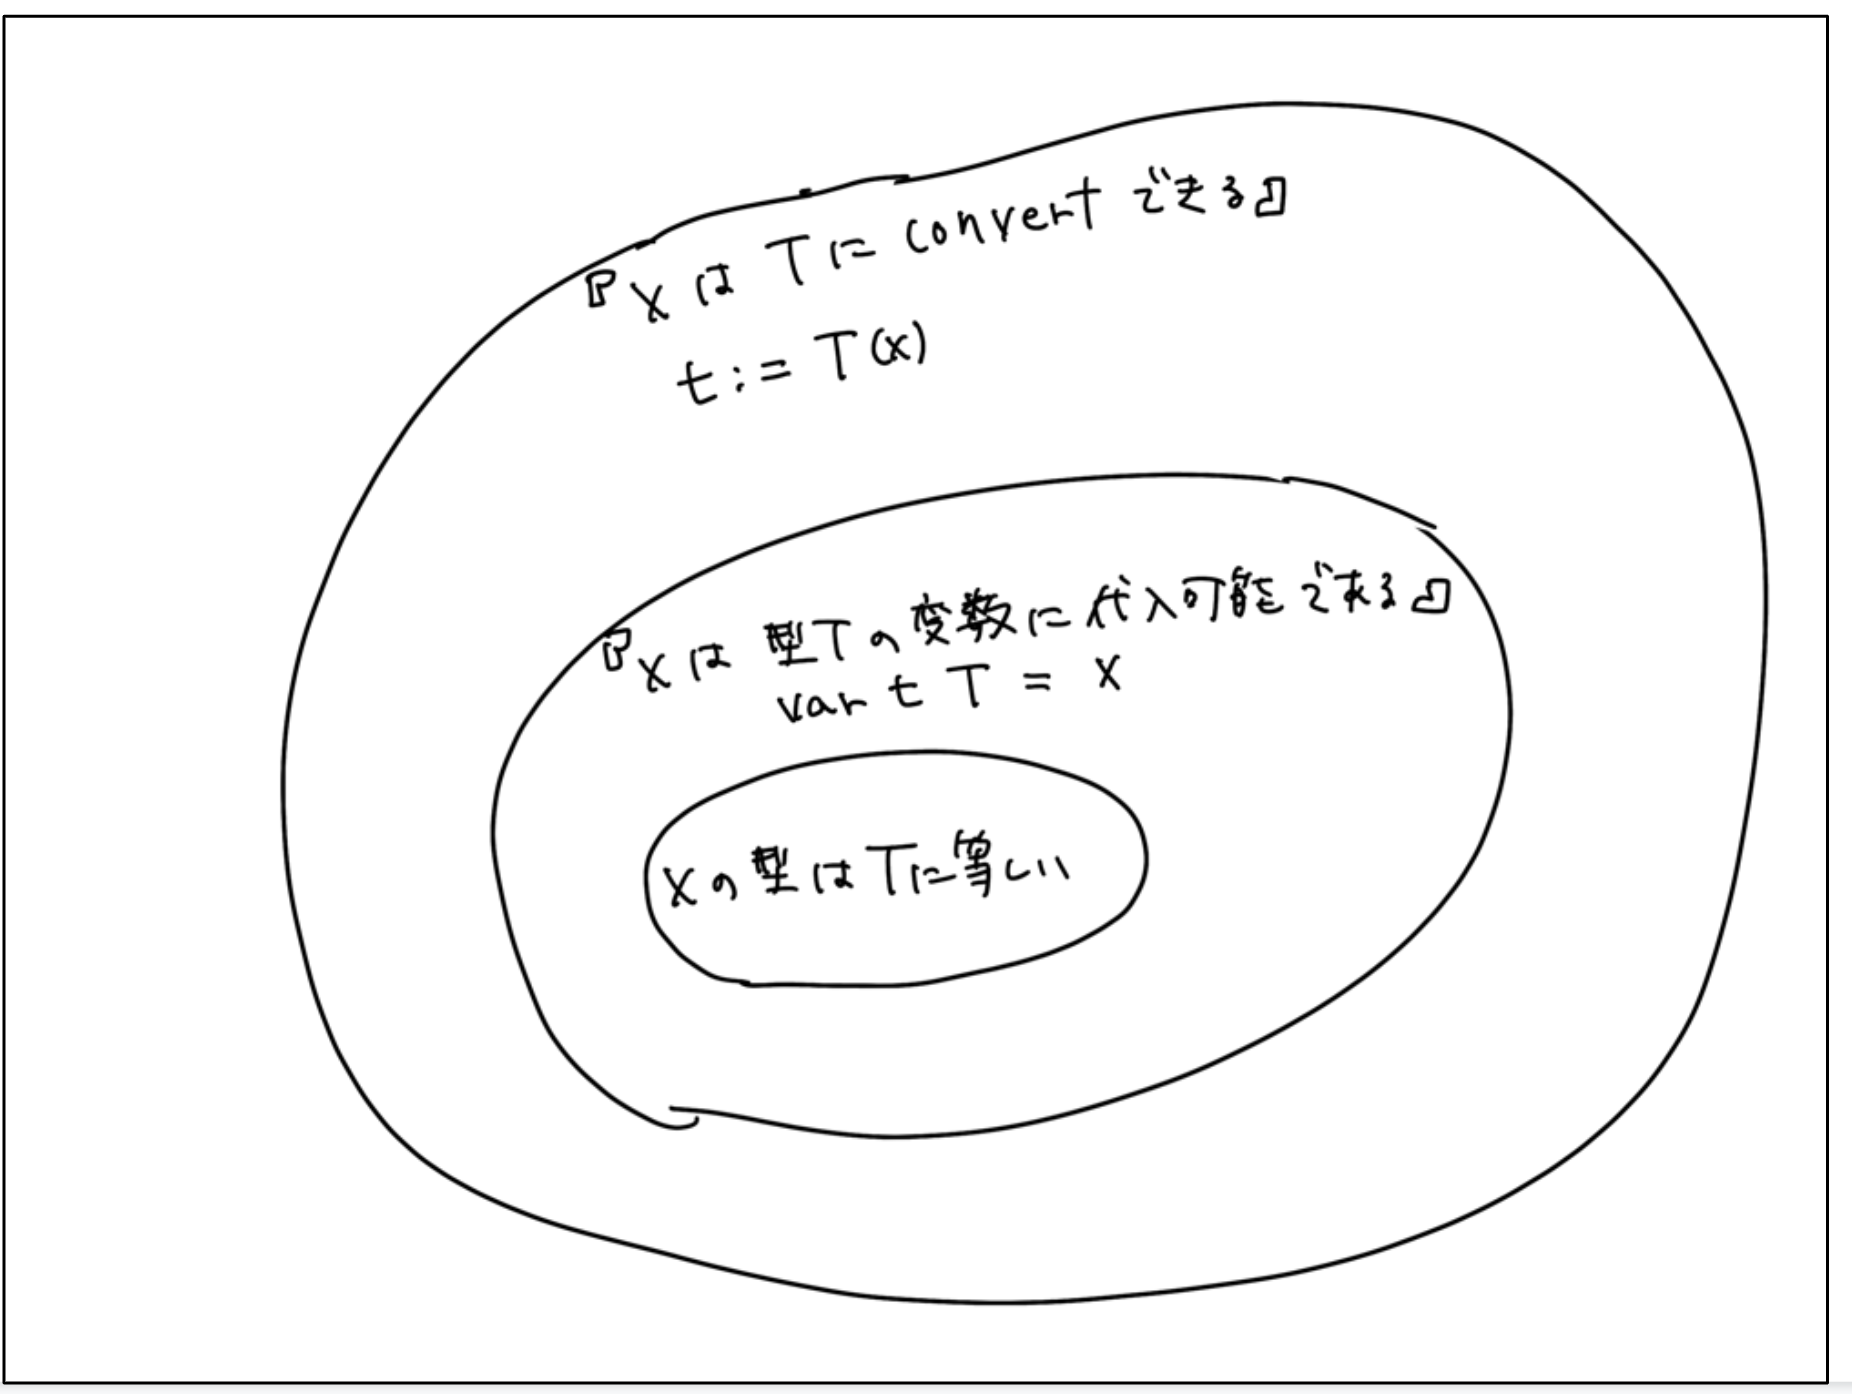 『xは Tに convert できる』
t := T(x)
『xは 型Tの変数に代入可能である』
var t T = x
xの型はTに等しい